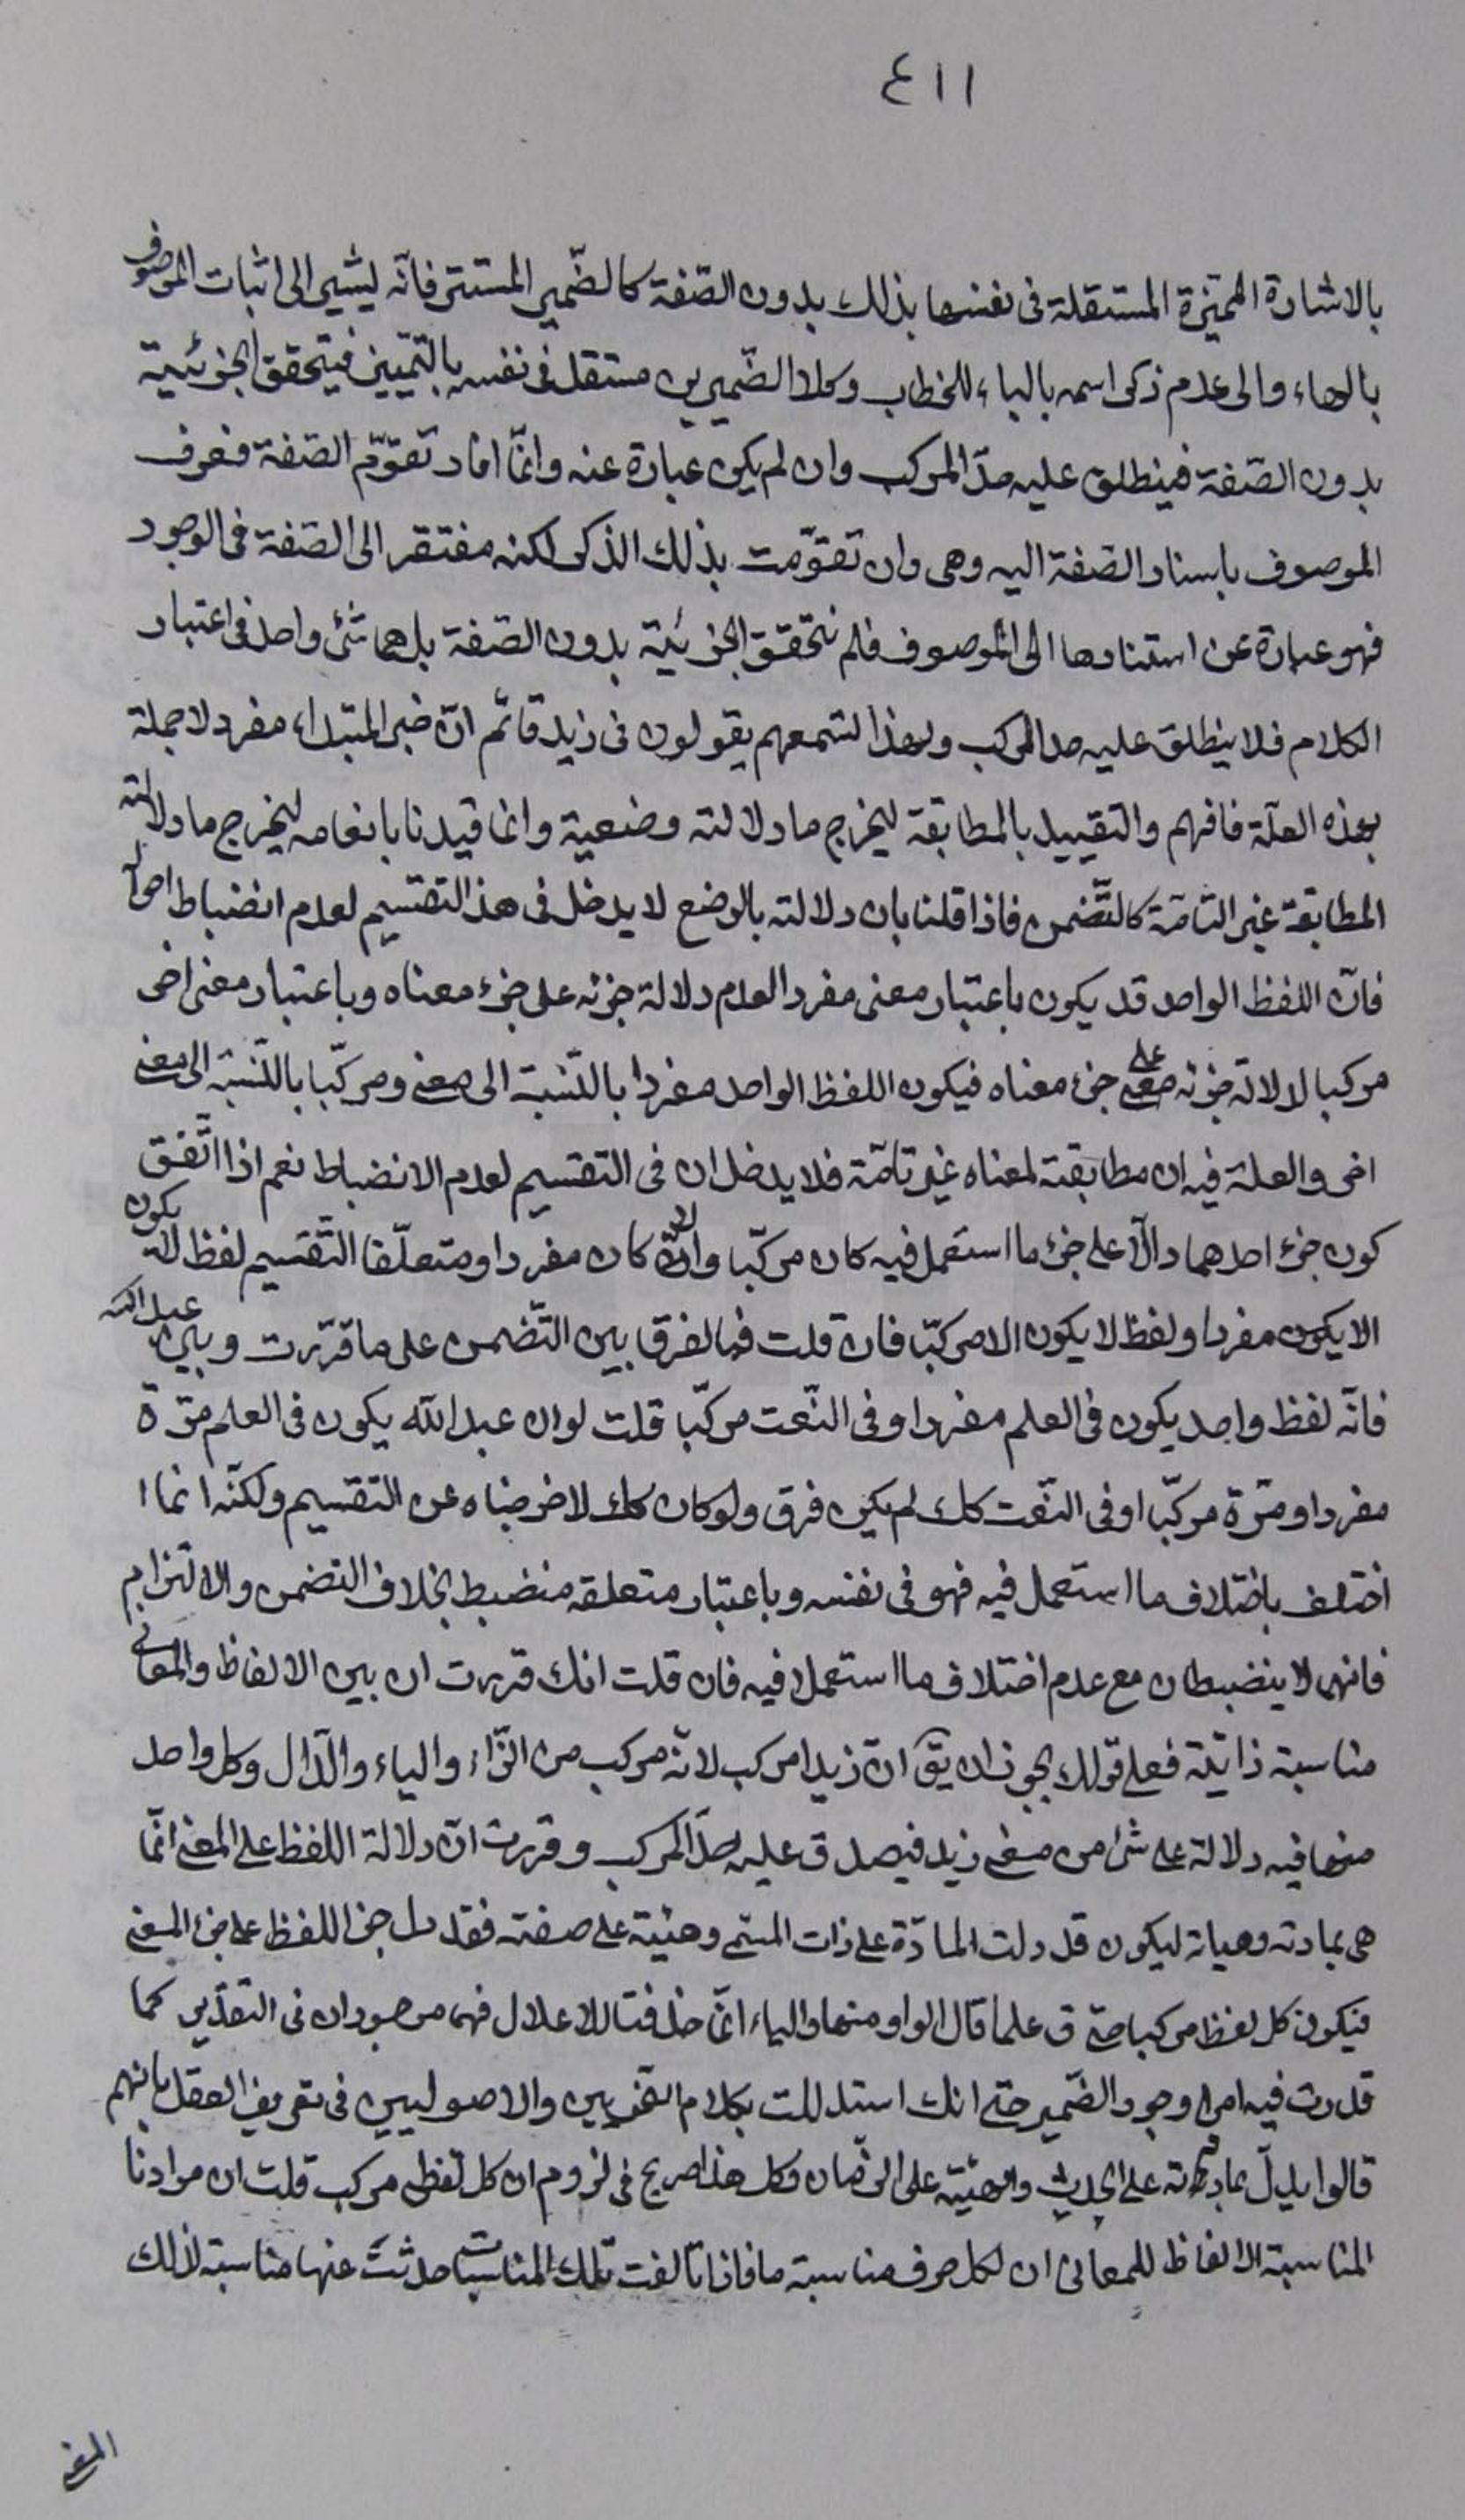 ٤١١
بالاشارة المميّزة المستقلة فى نفسها بذلك بدون الصّفة كالضّمير المستتر فانّه ليشير الى اثبات الموصوف
بالهاء والى عدم ذكر اسمه بالياء للخطاب وكلا الضّميرين مستقل فى نفسه بالتّمييز فيتحقق الجزئية
بدون الصّفة فينطلق عليه حدّ المركب وان لم يكن عبارة عنه وانّما افاد تقوّم الصّفة فعرف
الموصوف باسناد الصّفة اليه وهى وان تقوّمت بذلك الذكر لكنه مفتقر الى الصّفة فى الوجود
فهو عبارة عن استنادها الى الموصوف فلم تتحقق الجزئيّة بدون الصّفة بل هما شئ واحد فى اعتبار
الكلام فلا ينطلق عليه حد المركب ولهذا لتسمعهم يقولون فى زيد قائم انّ خبر المبتداء مفرد لا جملة
بهذه العلّة فافهم والتقييد بالمطابقة ليخرج ما دلالته وضعية وانما قيدنا بانعامه ليخرج ما دلالته
المطابقة غير التامّة كالتّضمن فاذا قلنا بان دلالته بالوضع لا يدخل فى هذا التقسيم لعدم انضباط احواله
فانّ اللفظ الواحد قد يكون باعتبار معنى مفردا لعدم دلالة جزئه على جزء معناه وباعتبار معنى اخر
مركبا لدلالة جزئه على جزء معناه فيكون اللفظ الواحد مفردا بالنّسبة الى معنى ومركّبا بالنّسبة الى معنى
اخر والعلة فيه ان مطابقته لمعناه غير تامّة فلا يدخلان فى التقسيم لعدم الانضباط نعم اذا اتّفق
كون جزء احدهما دالّا على جزء ما استعمل فيه كان مركّبا والّا كان مفردا ومتعلّقا التّقسيم لفظ لا يكون
الا يكون مفردا ولفظ لا يكون الا مركّبا فان قلت فما الفرق بين التّضمن على ما قرّرت وبين عبد الله
فانّه لفظ واحد يكون فى العلم مفردا وفى النّعت مركّبا قلت لو ان عبد الله يكون فى العلم مرّة
مفردا ومرّة مركّبا او فى النّعت كك لم يكن فرق ولو كان كك لاخرجناه عن التقسيم ولكنّه انما
اختلف باختلاف ما استعمل فيه فهو فى نفسه وباعتبار متعلقه منضبط بخلاف التضمن والالتزام
فانهما لا ينضبطان مع عدم اختلاف ما استعملا فيه فان قلت انك قررت ان بين الالفاظ والمعانى
مناسبة ذاتيّة فعلى قولك يجوز ان يق انّ زيدا مركب لانّه مركب من الزّاء والياء والدّال وكل واحد
منها فيه دلالة على شئ من معنى زيد فيصدق عليه حدّ المركب وقررت انّ دلالة اللفظ على المعنى انّما
هى بمادته وهياته ليكون قد دلت المادّة على ذات المسمّى وهيئة على صفته فقد دل جزء اللفظ على جزء المعنى
فيكون كل لفظ مركبا حتى ق علما قال الواو منها والياء انّما حذفتا للاعلال فهما موجودان فى التقدير كما
قدرت فيه امرا وجود الضّمير حتى انك استدللت بكلام النّحويين والاصوليين فى تعريف الفعل بانهم
قالوا يدلّ بمادته على الحدث والهيئة على الزّمان وكل هذا صريح فى لزوم ان كل لفظ مركب قلت ان مرادنا
المناسبة الالفاظ للمعانى ان لكل حرف مناسبة ما فاذا تالفت تلك المناسبات حدثت عنها مناسبة لذلك
المعنى